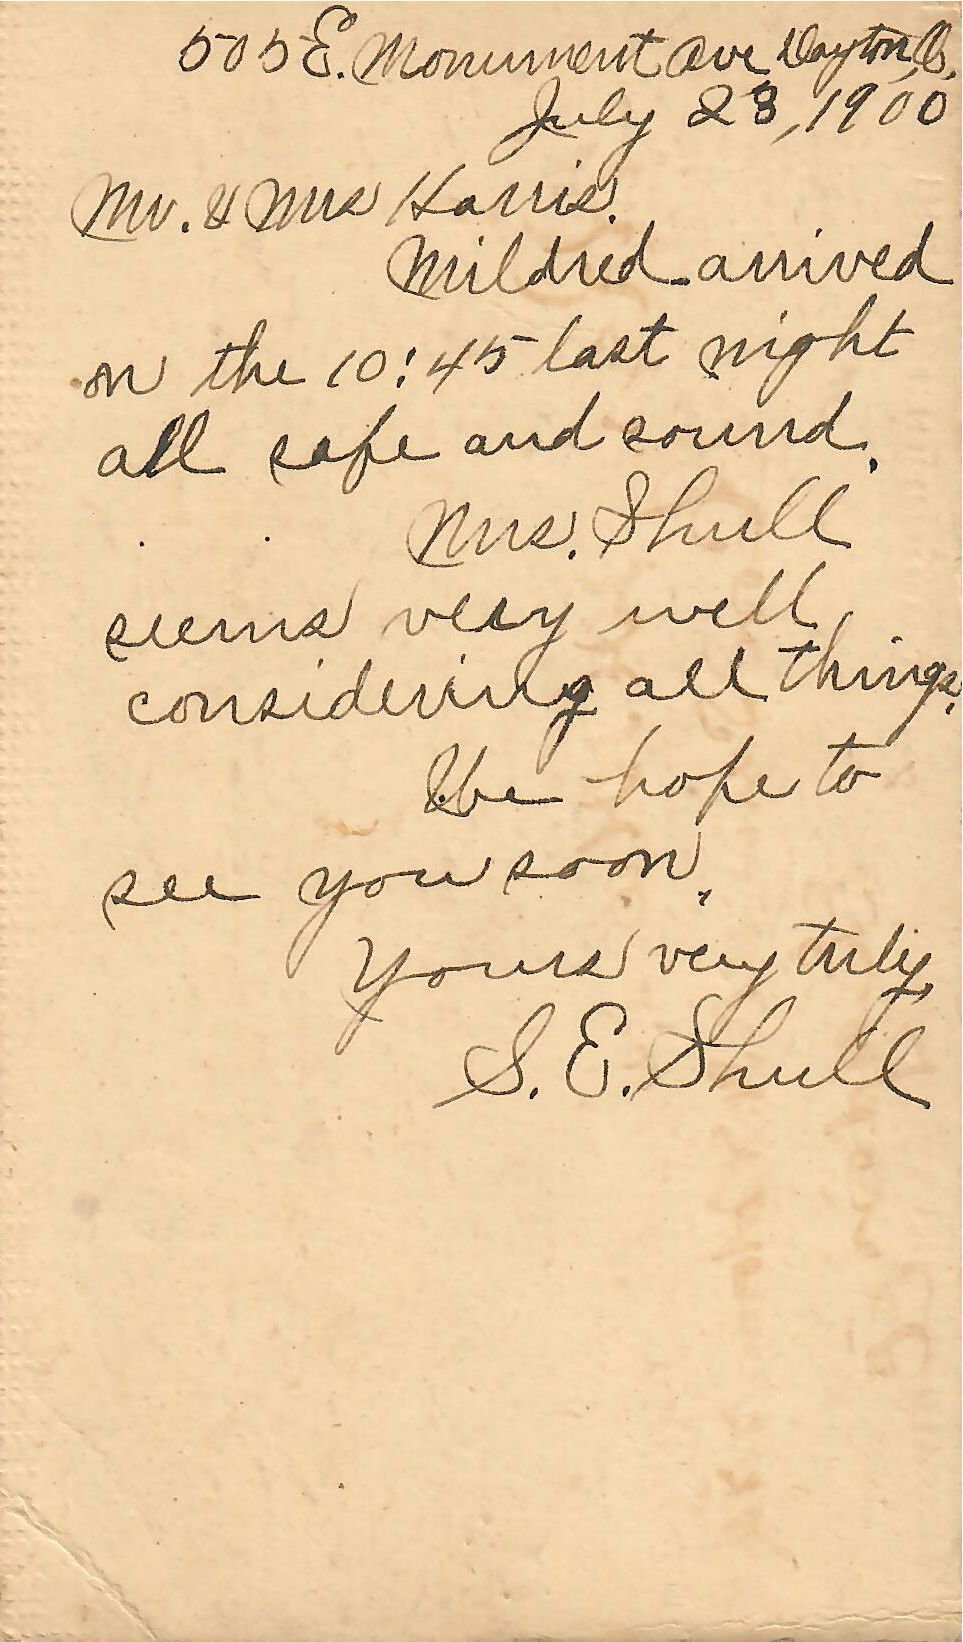 505 E. Monument Ave Dayton, O.
July 28, 1900
Mr. & Mrs Harris.
Mildred arrived
on the 10:45 last night
all safe and sound.
Mrs. Shull
seems very well,
considering all things.
We hope to
see you soon.
Yours very truly,
S. E. Shull